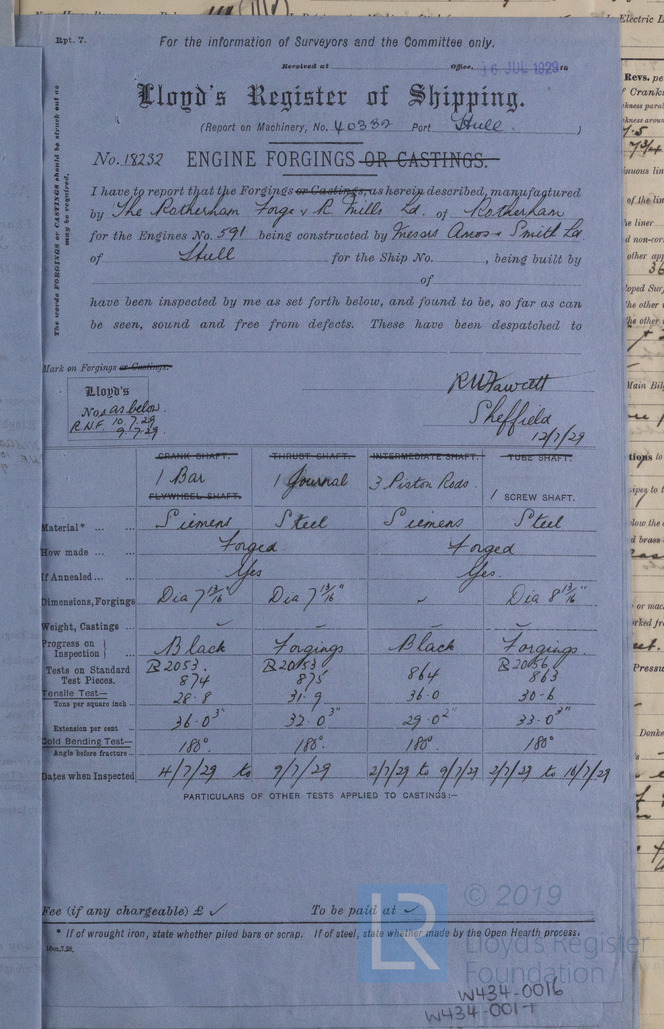 Rpt. 7.
For the information of Surveyors and the Committee only.
Received at Office, 16 JUL 1929 19
Lloyd's Register of Shipping.
(Report on Machinery, No. 40382 Port Hull. )
No. 18232 ENGINE FORGINGS OR CASTINGS.
The words FORGINGS or CASTINGS should be struck out as
may be required.
I have to report that the Forgings or Castings, as herein described, manufactured
by The Rotherham Forge & R Mills Ld. of Rotherham
for the Engines No. 591 being constructed by Messrs Amos & Smith Ld.
of Hull for the Ship No. , being built by
of
have been inspected by me as set forth below, and found to be, so far as can
be seen, sound and free from defects. These have been despatched to
Mark on Forgings or Castings.
Lloyd's
Nos as below.
10.7.29
9.7.29
Fawcett
Sheffield
12/7/29
CRANK SHAFT. THRUST SHAFT. INTERMEDIATE SHAFT. TUBE SHAFT.
1 Bar 1 Journal 3 Piston Rods.
FLYWHEEL SHAFT. 1 SCREW SHAFT.
Material* ... ... Siemens Steel Siemens Steel
How made ... ... Forged Forged
If Annealed ... ... Yes Yes.
Dimensions, Forgings Dia 7 13/16" Dia 7 13/16" Dia 8 13/16"
Weight, Castings ...
Progress on Inspection } Black Forgings Black Forgings.
Tests on Standard Test Pieces. B2053. 874 B2053 875 864 B2056 863
Tensile Test— Tons per square inch 28.8 31.9 36.0 30.6
Extension per cent 36.0 3" 32.0 3" 29.0 2" 33.0 3"
Cold Bending Test— Angle before fracture 180°. 180°. 180°. 180°
Dates when Inspected 4/7/29 to 9/7/29 2/7/29 to 9/7/29 2/7/29 to 10/7/29
PARTICULARS OF OTHER TESTS APPLIED TO CASTINGS:—
Fee (if any chargeable) £ To be paid at
* If of wrought iron, state whether piled bars or scrap. If of steel, state whether made by the Open Hearth process.
LR © 2019
Lloyd's Register
Foundation
W434-0016